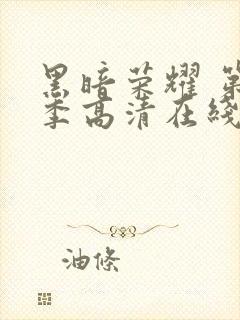 黑暗荣耀 第
季高清在线
油條